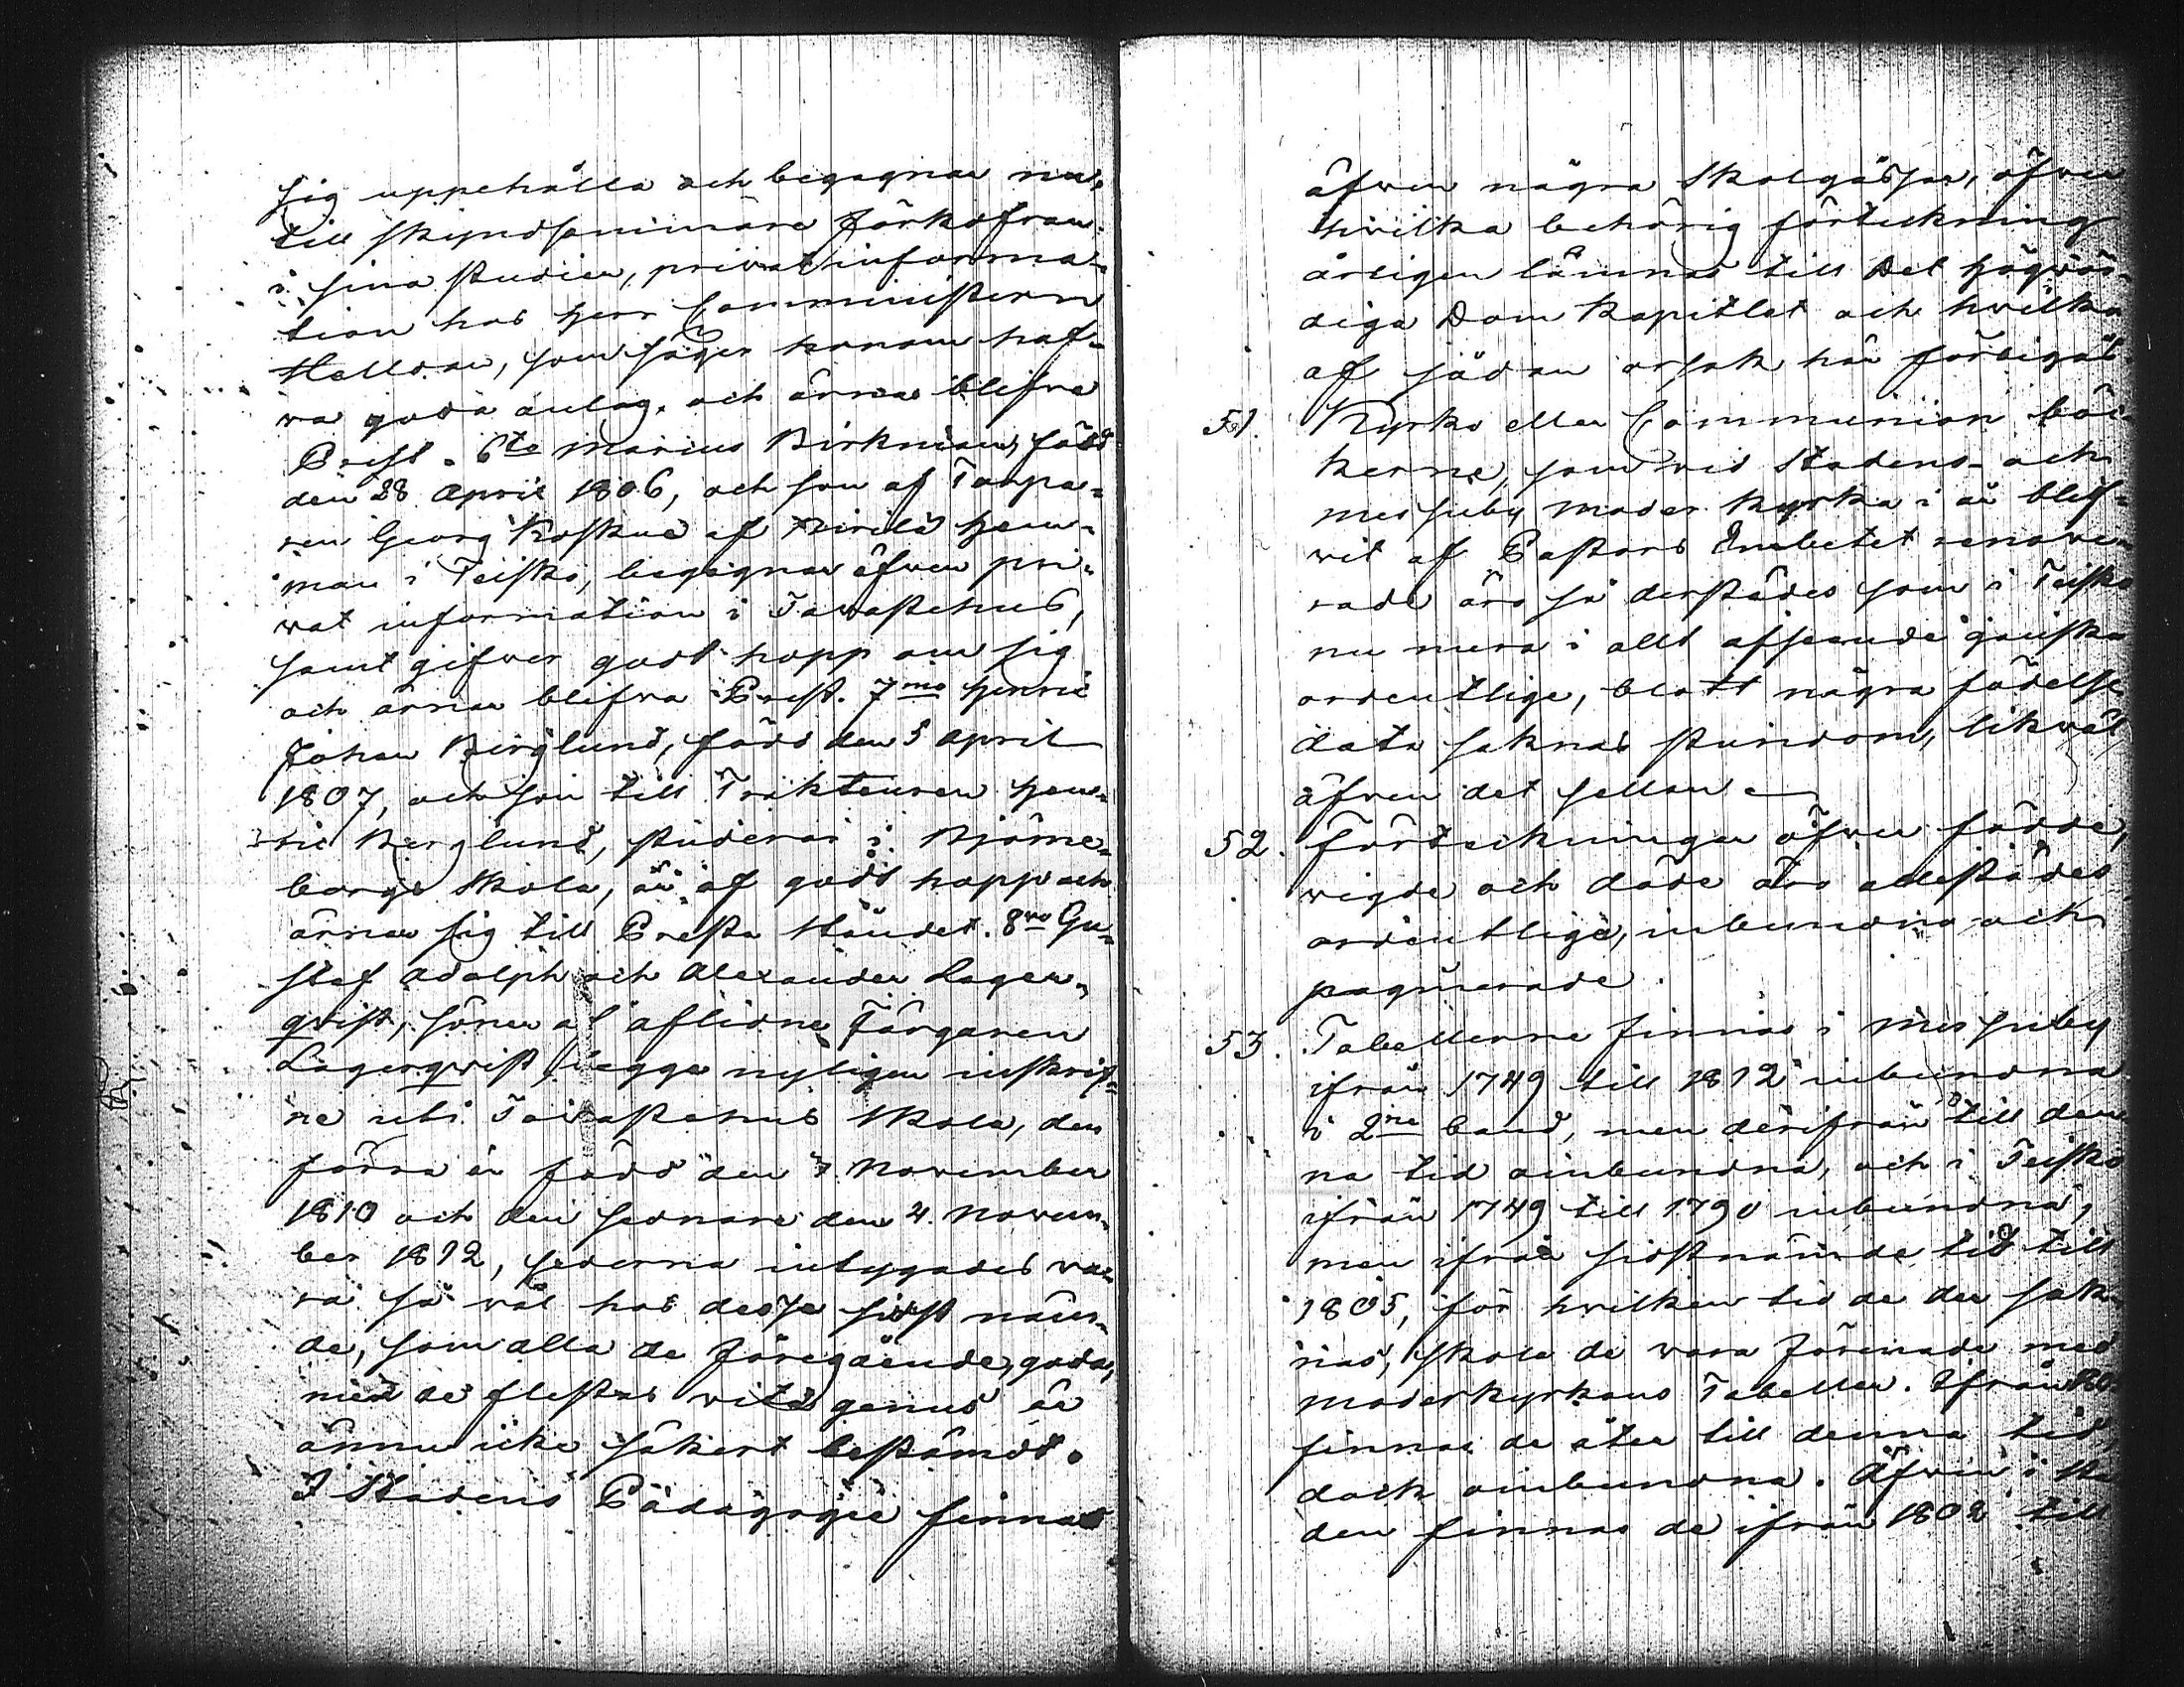 sig uppehålla och begagnar nu,
till skyndsammare förkofran
i sina studier, privat informa-
tion hos Herr Comministern
Hellman, som säger honom haf-
va goda anlag, och ärnar blifva
Prest. 6te Marius Birkman, född
den 28 April 1806, och son af Torpa-
ren Georg Koskue af Hem-
man i Teisko, begagnar äfven pri-
vat information i Tavastehus,
samt gifver godt hopp om sig
och ärnar blifva Prest. 7mo Henric
Johan Berglund, född den 5 April
1807, och son till Trakteuren Hen-
ric Berglund, studerar i Björne-
borgs Skola, är af godt hopp och
ärnar sig till Presta Ståndet. 8vo Gu-
staf Adolph och Alexander Lager-
qvist, söner af aflidne Färgaren
Lagerqvist, begge nyligen inskrif-
ne uti Tavastehus Skola, den
förra är född den 7 November
1810 och den sednare den 4. Novem-
ber 1812, sederna intygades va-
ra så väl hos desse sidst nämn-
de, som alla de föregående, goda,
men de flestas vitæ genus är
ännu icke säkert bestämdt.
I Stadens Pädagogie finnas
äfven några Skolgåssar, öfver
hvilka behörig förteckning
årligen lämnas till Det Högvör-
diga Dom Kapitlet och hvilka
af sådan orsak här förbigås
51. Kyrko eller Communion böc-
kerne, som vid Stadens och
Messuby Moder Kyrka i år blif-
vit af Pastors Embetet renove-
rade äro så derstädes som i Teisko
nu mera i allt afseende ganska
ordentlige, blott några födelse
data saknas stundom, likväl
äfven det sellan
52. Förteckningen öfver födde,
vigde och döde äro allestädes
ordentlige, inbundna och
paginerade.
53. Tabellerne finnas i Messuby
ifrån 1749 till 1812 inbundna
i 2ne band, men derifrån till den-
na tid oinbundna, och i Teisko
ifrån 1749 till 1790 inbundna,
men ifrån sistnämde tid till
1805, för hvilken tid de der sak-
nas, skola de vara förenade med
Moderkyrkans Tabeller. Ifrån
finnas de åter till denna tid,
dock oinbundna. Äfven i Sta
den finnas de ifrån 1802 till